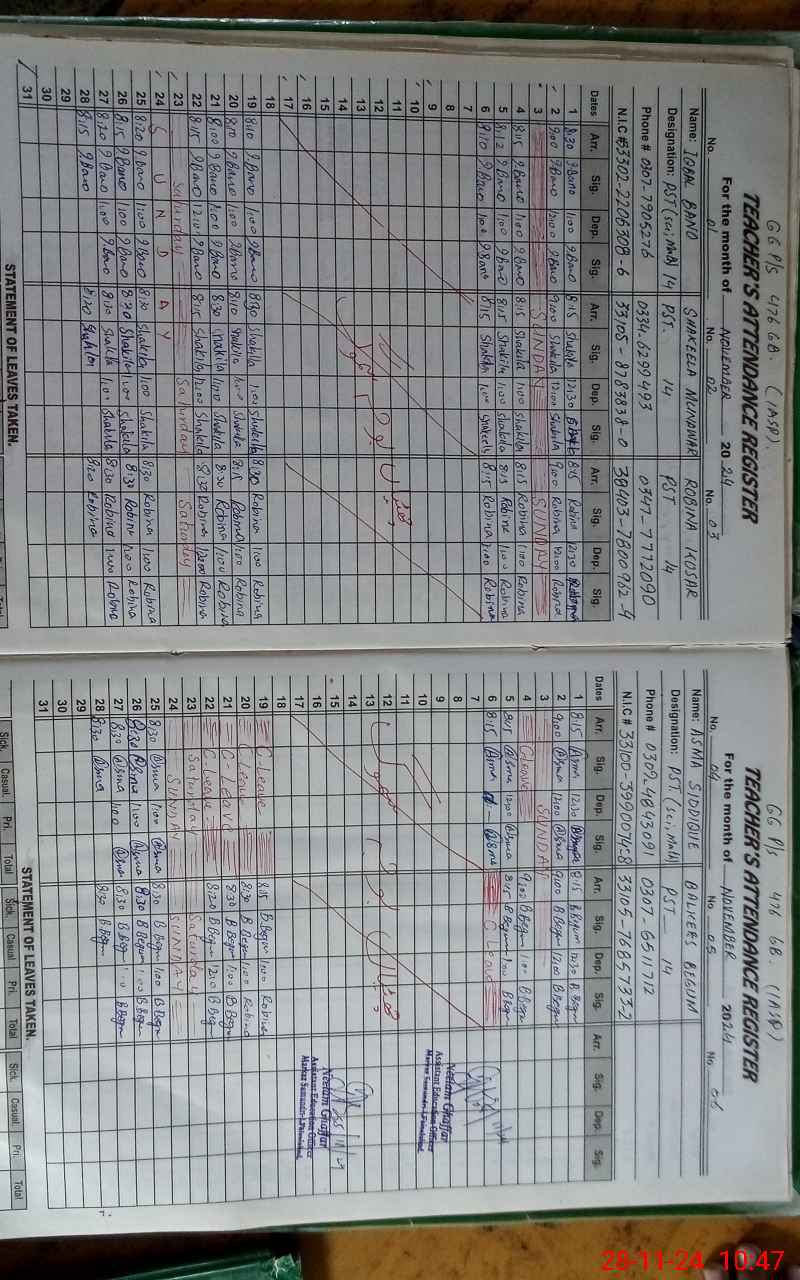 GG P/S 476 GB. (IASP).
TEACHER'S ATTENDANCE REGISTER
No. 01 For the month of NOVEMBER 2024 No. 02 No. 03
Name: IQBAL BANO SHAKEELA MUNAWAR ROBINA KOSAR
Designation: PST (sci, Math) 14 PST. 14 PST 14
Phone # 0307-7905276 0334-6299493 0347-7712090
N.I.C # 33302-2206308-6 33105-8783838-0 38403-7800962-4
Dates Arr. Sig. Dep. Sig. Arr. Sig. Dep. Sig. Arr. Sig. Dep. Sig.
1 8:30 I.Bano 1:00 I.Bano 8:15 Shakila 12:30 8:15 Robina 12:30 Robina
2 9:00 I.Bano 12:00 I.Bano 9:00 Shakila 12:00 Shakila 9:00 Robina 12:00 Robina
3 SUNDAY SUNDAY
4 8:15 I.Bano 1:00 I.Bano 8:15 Shakila 1:00 Shakila 8:15 Robina 1:00 Robina
5 8:12 I.Bano 1:00 I.Bano 8:15 Shakila 1:00 Shakila 8:15 Robina 1:00 Robina
6 I.Bano 1:00 I.Bano 8:15 Shakila 1:00 8:15 Robina 1:00 Robina
7
8
9
10
11
12
13
14
15
16
17
18
19 8:10 I.Bano 1:00 I.Bano 8:30 Shakila 1:00 Shakila 8:30 Robina 1:00 Robina
20 8:10 I.Bano 1:00 I.Bano 8:10 Shakila 1:00 Shakila 8:15 Robina 1:00 Robina
21 8:00 I.Bano 1:00 I.Bano 8:30 Shakila 1:00 Shakila 8:30 Robina 1:00 Robina
22 8:15 I.Bano 12:10 I.Bano 8:15 Shakila 12:00 Shakila 8:30 Robina 12:00 Robina
23 Saturday Saturday Saturday
24 SUNDAY
25 8:20 I.Bano 1:00 I.Bano 8:30 Shakila 1:00 Shakila 8:30 Robina 1:00 Robina
26 8:15 I.Bano 1:00 I.Bano 8:30 Shakila 1:00 Shakila 8:30 Robina 1:00 Robina
27 8:20 I.Bano 1:00 I.Bano 8:30 Shakila 1:00 Shakila 8:30 Robina 1:00 Robina
28 8:15 I.Bano 8:20 Shakila 8:20 Robina
29
30
31
STATEMENT OF LEAVES TAKEN.
GG P/S 476 GB. (IASP)
TEACHER'S ATTENDANCE REGISTER
No. 04 For the month of NOVEMBER 2024 No. 05 No. 06
Name: ASMA SIDDIQUE BALKEES BEGUM
Designation: PST. (sci, Math) PST - 14
Phone # 0309-4843091 0307-6511712
N.I.C # 33100-3990074-8 33105-7685733-2
Dates Arr. Sig. Dep. Sig. Arr. Sig. Dep. Sig. Arr. Sig. Dep. Sig.
1 8:15 Asma 12:30 8:15 B Begum 12:30 B. Begum
2 9:00 Asma 12:00 Asma 9:00 B Begum 12:00 B Begum
3 SUNDAY
4 C.Leave 9:00 B Begum 1:00 B Begum
5 8:15 Asma Asma 8:15 B Begum 1:00 B Begum
6 8:15 Asma Asma C-Leave
7
8
9
10
11
12
13
14
15
16
17
18
19 C-Leave 8:15 B Begum 1:00
20 C.Leave 8:30 B Begum 1:00
21 C-LEAVE 8:30 B Begum 1:00 B Begum
22 C.Leave 8:20 B Begum 12:00 B Begum
23 Saturday Saturday
24 SUNDAY SUNDAY
25 8:30 Asma 1:00 Asma 8:30 B Begum 1:00 B Begum
26 8:30 Asma 1:00 Asma 8:30 B Begum 1:00 B Begum
27 8:30 Asma 1:00 Asma 8:30 B Begum 1:00 B Begum
28 8:30 Asma 8:30 B Begum
29
30
31
Neelam Ghaffar
Assistant Education Officer
Neelam Ghaffar
Assistant Education Officer
STATEMENT OF LEAVES TAKEN.
Sick. Casual. Pri. Total Sick. Casual Pri. Total Sick. Casual. Pri. Total
28-11-24 10:47